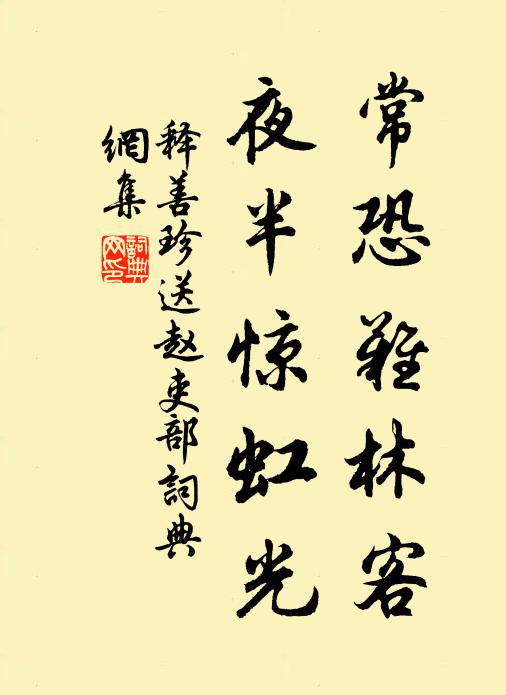 常恐雞林客
夜半惊虹光
释善珍送赵吏部詞典
網集
詞典网印